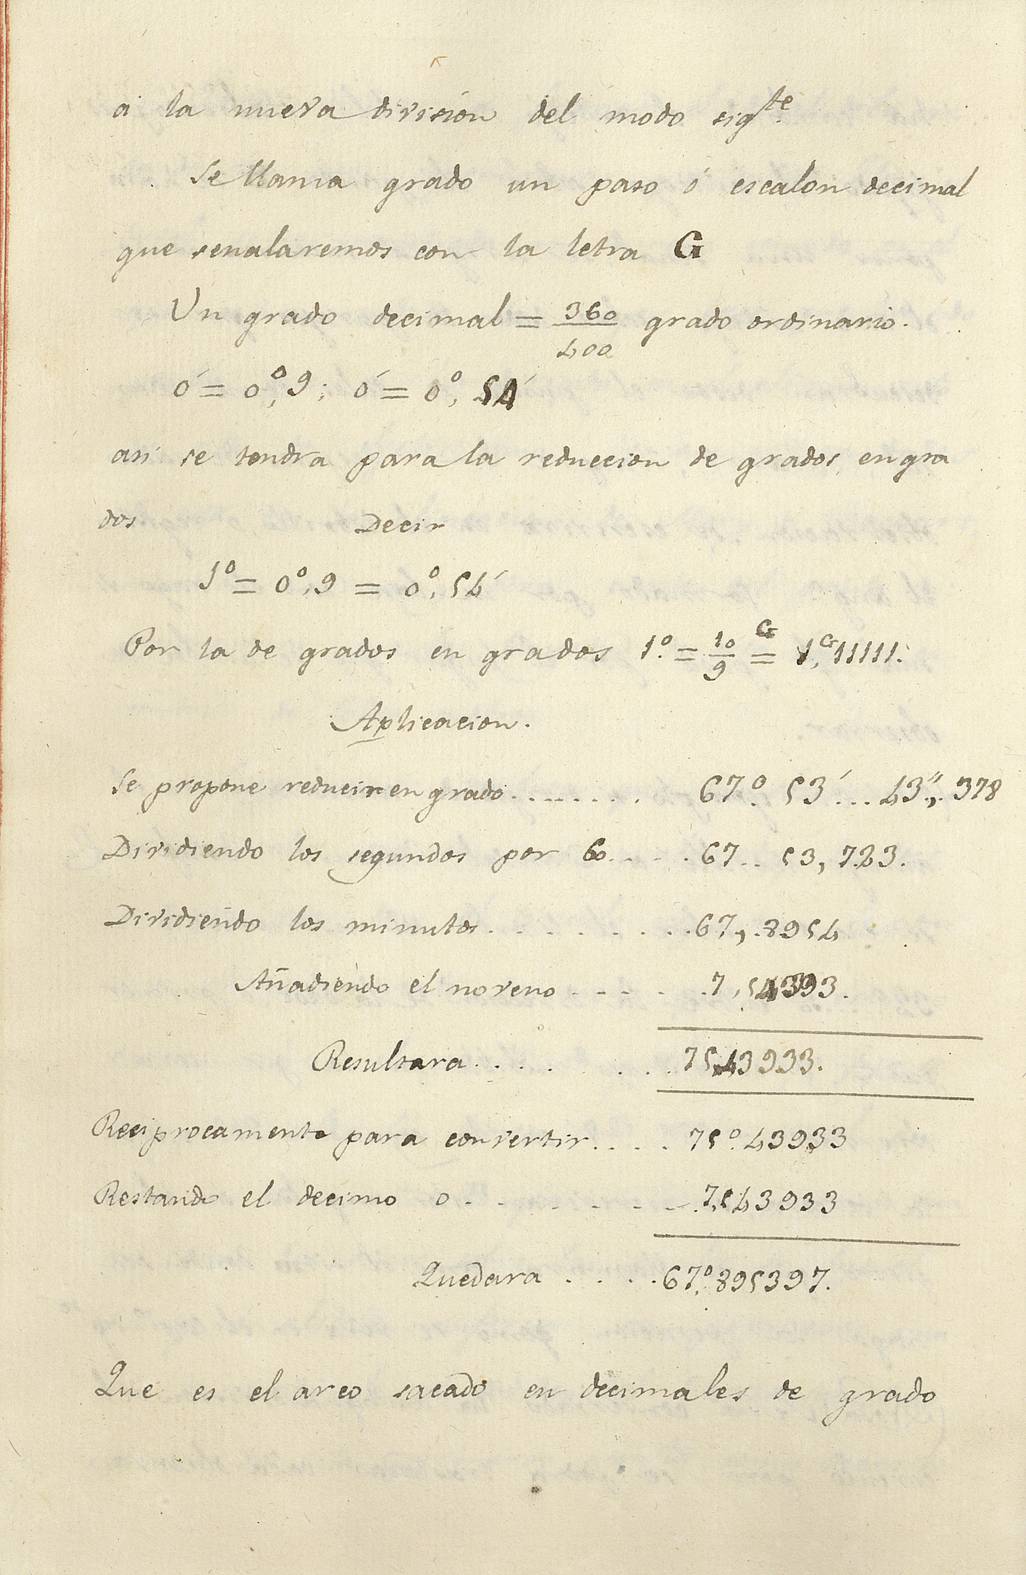 a la nueva division del modo sigte.
Se llama grado un paso ó escalon decimal
que senalaremos con la letra G
Un grado decimal = 360/400 grado ordinario.
ó = 0°,9; ó = 0°, 54'
asi se tendra para la reduccion de grados en gra
dos Decir
1° = 0°,9 = 0°, 54'
Por la de grados en grados 1°. = 10/9 G = 1,G11111.
Aplicacion.
Se propone reducir en grado........ 67°. 53'... 43",. 378
Dividiendo los segundos por 60.... 67.. 53, 723.
Dividiendo los minutos......... 67,.8954
Añadiendo el noveno..... 7,54393.
Resultara....... 75,43933.
Reciprocamente para convertir.... 75°.43933
Restando el decimo o....... 7,543933
Quedara.... 67°.895397.
Que es el arco sacado en decimales de grado